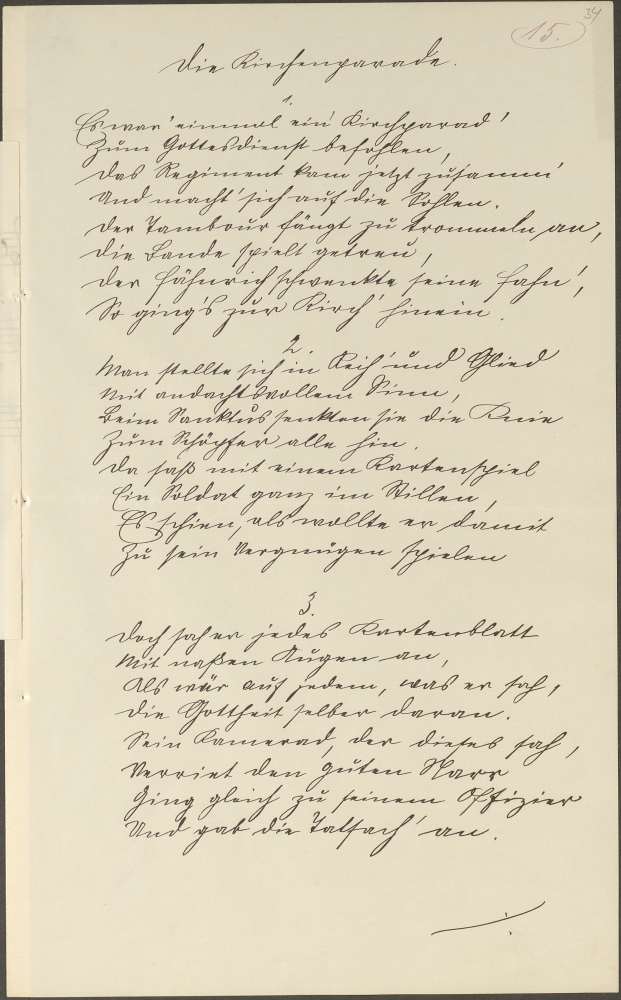 34
15.
Die Kirchenparade.
1.
Es war' einmal ein' Kirchparad'
Zum Gottesdienst befohlen,
Das Regiment kam jetzt zusamm'
Und macht' sich auf die Sohlen.
Der Tambour fängt zu trommeln an,
Die Bande spielt getreu,
Der Fähnrich schwenkte seine Fahn',
So ging's zur Kirch' hinein.
2.
Man stellte sich in Reih' und Glied
Mit andachtsvollem Sinn,
Beim Sanktus senkten sie die Knie
Zum Schöpfer alle hin.
Da saß mit einem Kartenspiel
Ein Soldat ganz im Stillen,
Es schien, als wollte er damit
Zu sein Vergnügen spielen
3.
Doch sah er jedes Kartenblatt
Mit naßen Augen an,
Als wär auf jedem, was er sah,
Die Gottheit selber daran.
Sein Kamerad, der dieses sah,
Verriet den guten Narr
Ging gleich zu seinem Offizier
Und gab die Tatsach' an.